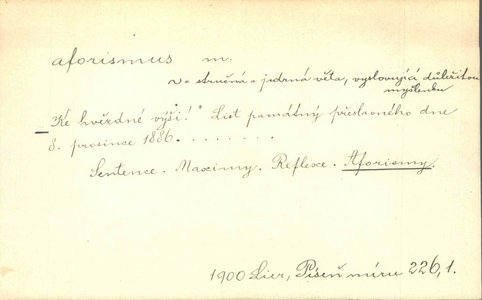 aforismus m.
v. stručná a jadrná věta, vyslovující důležitou
myšlenku
Ke hvězdné výši! List památný přeslavného dne
8. prosince 1886. . . . . . . .
Sentence. Maximy. Reflexe. Aforismy.
1900 Lier, Píseň míru 226, 1.